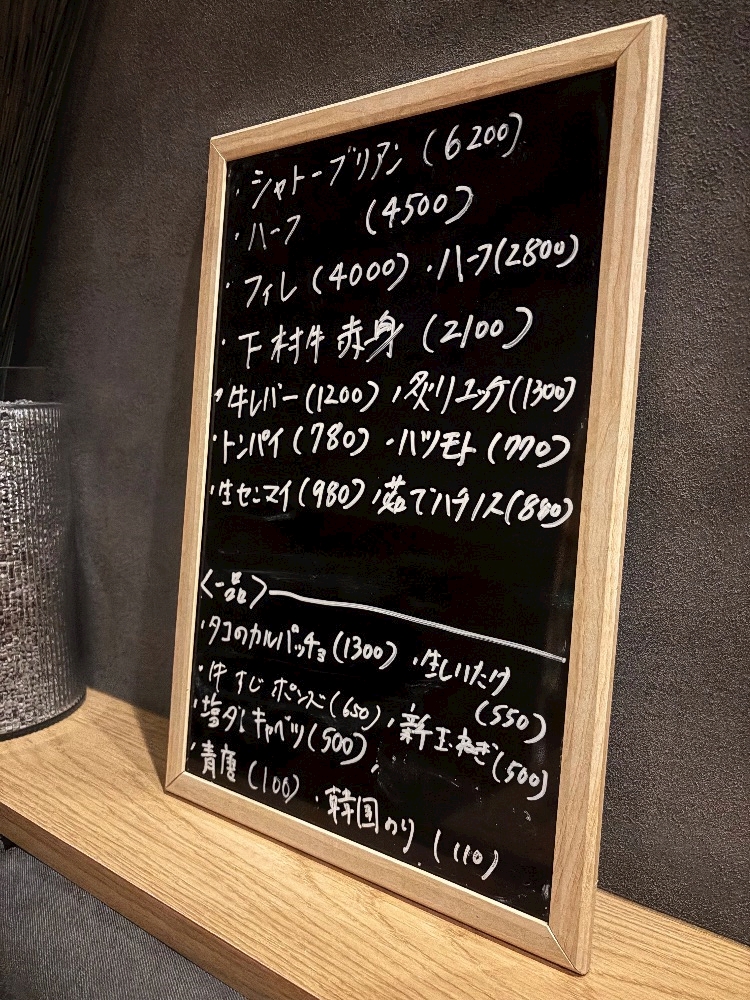 ・シャトーブリアン (6200)
・ハーフ (4500)
・フィレ (4000) ・ハーフ(2800)
・下村牛 赤身 (2100)
・牛レバー (1200) ・炙りユッケ(1300)
・トンパイ (780) ・ハツモト (770)
・生センマイ (980) ・茹でハチノス(880)
〈一品〉
・タコのカルパッチョ (1300) ・生しいたけ (550)
・牛すじポンズ(650) ・新玉ねぎ(500)
・塩ダレキャベツ(500)
・青唐 (100) ・韓国のり (110)